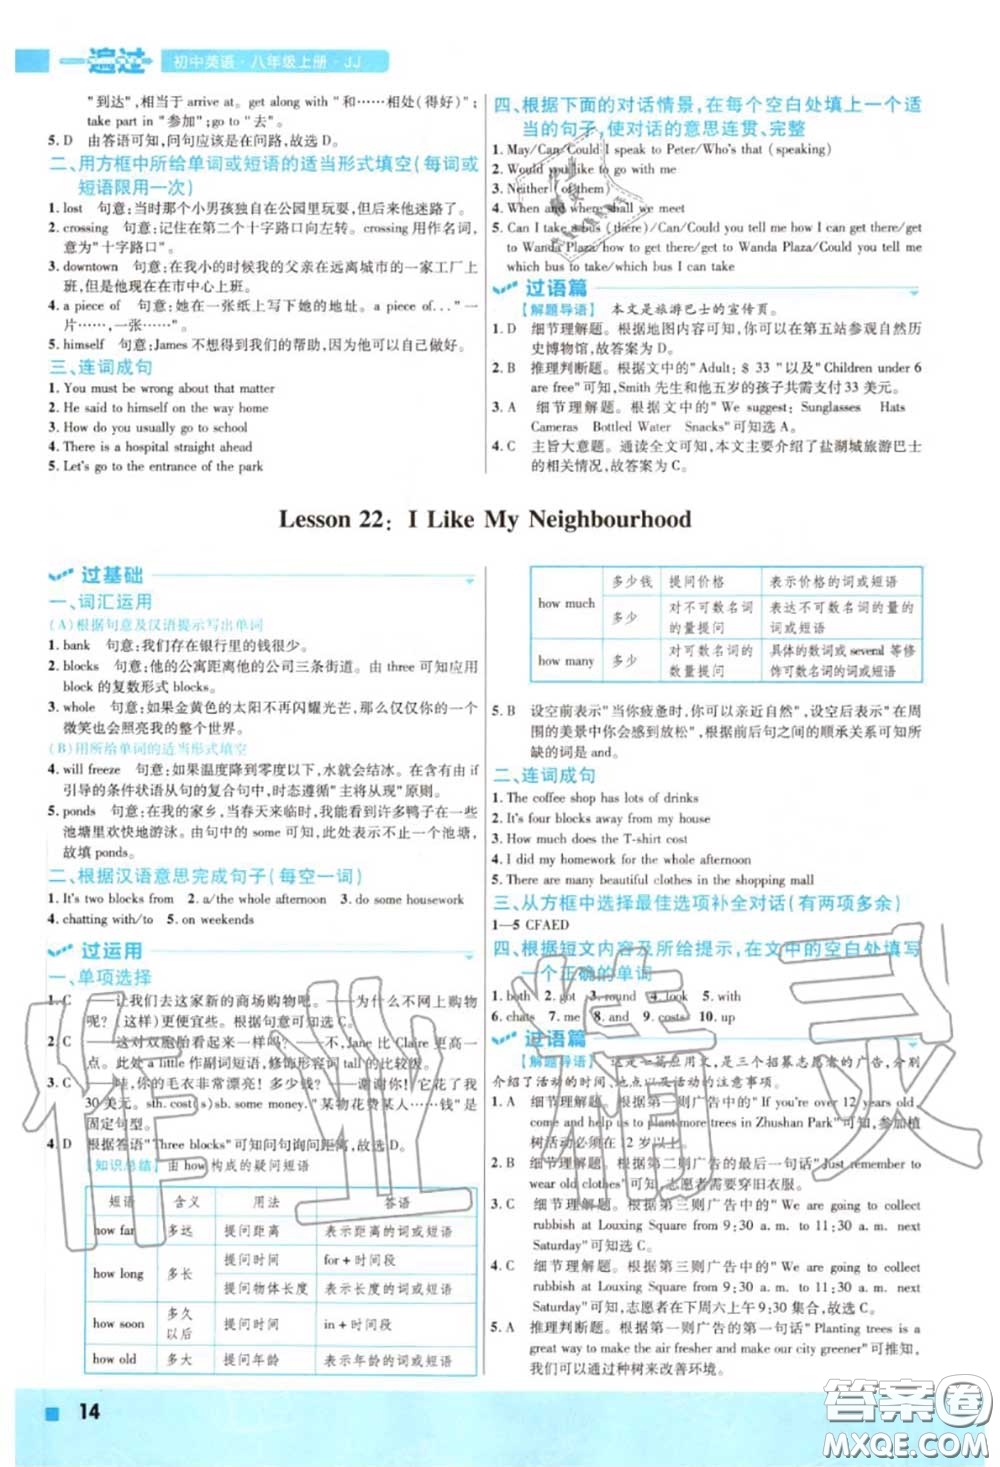 一遍过 初中英语·八年级上册·JJ
"到达",相当于 arrive at。get along with "和……相处(得好)";
take part in "参加";go to "去"。
5. D 由答语可知,问句应该是在问路,故选 D。
二、用方框中所给单词或短语的适当形式填空(每词或
短语限用一次)
1. lost 句意:当时那个小男孩独自在公园里玩耍,但后来他迷路了。
2. crossing 句意:记住在第二个十字路口向左转。crossing 用作名词,
意为"十字路口"。
3. downtown 句意:在我小的时候我的父亲在远离城市的一家工厂上
班,但是他现在在市中心上班。
4. a piece of 句意:她在一张纸上写下她的地址。a piece of... "一
片……,一张……"。
5. himself 句意:James 不想得到我们的帮助,因为他可以自己做好。
三、连词成句
1. You must be wrong about that matter
2. He said to himself on the way home
3. How do you usually go to school
4. There is a hospital straight ahead
5. Let's go to the entrance of the park
四、根据下面的对话情景,在每个空白处填上一个适
当的句子,使对话的意思连贯、完整
1. May/Can/Could I speak to Peter/Who's that (speaking)
2. Would you like to go with me
3. Neither (of them)
4. When and where shall we meet
5. Can I take a bus (there)/Can/Could you tell me how I can get there/get
to Wanda Plaza/how to get there/get to Wanda Plaza/Could you tell me
which bus to take/which bus I can take
过语篇
【解题导语】 本文是旅游巴士的宣传页。
1. D 细节理解题。根据地图内容可知,你可以在第五站参观自然历
史博物馆,故答案为 D。
2. B 推理判断题。根据文中的"Adult: $ 33 "以及"Children under 6
are free"可知,Smith 先生和他五岁的孩子共需支付 33 美元。
3. A 细节理解题。根据文中的" We suggest: Sunglasses Hats
Cameras Bottled Water Snacks"可知选 A。
4. C 主旨大意题。通读全文可知,本文主要介绍了盐湖城旅游巴士
的相关情况,故答案为 C。
Lesson 22: I Like My Neighbourhood
过基础
一、词汇运用
(A)根据句意及汉语提示写出单词
1. bank 句意:我们存在银行里的钱很少。
2. blocks 句意:他的公寓距离他的公司三条街道。由 three 可知应用
block 的复数形式 blocks。
3. whole 句意:如果金黄色的太阳不再闪耀光芒,那么,你的一个
微笑也会照亮我的整个世界。
(B)用所给单词的适当形式填空
4. will freeze 句意:如果温度降到零度以下,水就会结冰。在由 if
引导的条件状语从句的复合句中,时态遵循"主将从现"原则。
5. ponds 句意:在我的家乡,当春天来临时,有许多鸭子在一些
池塘里欢快地游泳。由句中的 some 可知,此处表示不止一个池塘,
故填 ponds。
二、根据汉语意思完成句子(每空一词)
1. It's two blocks from 2. a/the whole afternoon 3. do some housework
4. chatting with/to 5. on weekends
过运用
一、单项选择
1. C ——让我们去这家新的商场购物吧。——为什么不网上购物
呢?(这样)更便宜些。根据句意可知选 C。
2. C ——这对双胞胎看起来一样吗?——不,Jane 比 Claire 高一
点。此处 a little 作副词短语,修饰形容词 tall 的比较级。
3. C ——哇,你的毛衣非常漂亮!多少钱?——谢谢你!它花了我
30 美元。sth. cost(s)sb. some money. "某物花费某人……钱"是
固定句型。
4. D 根据答语"Three blocks"可知问句询问距离,故选 D。
【知识总结】 由 how 构成的疑问短语
短语 含义 用法 答语
how far 多远 提问距离 表示距离的词或短语
how long 多长 提问时间 for + 时间段
提问物体长度 表示长度的词或短语
how soon 多久以后 提问时间 in + 时间段
how old 多大 提问年龄 表示年龄的词或短语
how much 多少钱 提问价格 表示价格的词或短语
多少 对不可数名词的量提问 表达不可数名词的量的词或短语
how many 多少 对可数名词的数量提问 具体的数词或 several 等修饰可数名词的词或短语
5. B 设空前表示"当你疲惫时,你可以亲近自然",设空后表示"在周
围的美景中你会感到放松",根据前后句之间的顺承关系可知所
缺的词是 and。
二、连词成句
1. The coffee shop has lots of drinks
2. It's four blocks away from my house
3. How much does the T-shirt cost
4. I did my homework for the whole afternoon
5. There are many beautiful clothes in the shopping mall
三、从方框中选择最佳选项补全对话(有两项多余)
1—5 CFAED
四、根据短文内容及所给提示,在文中的空白处填写
一个正确的单词
1. both 2. got 3. round 4. look 5. with
6. chats 7. me 8. and 9. costs 10. up
过语篇
【解题导语】 这是一篇应用文,是三个招募志愿者的广告,分别
介绍了活动的时间、地点以及活动的注意事项。
1. A 细节理解题。根据第一则广告中的"If you're over 12 years
old, come and help us to plant more trees in Zhushan Park"可知,参加植
树活动必须在 12 岁以上。
2. B 细节理解题。根据第二则广告的最后一句话"Just remember to
wear old clothes"可知,志愿者需要穿旧衣服。
3. C 细节理解题。根据第三则广告中的" We are going to collect
rubbish at Louxing Square from 9:30 a. m. to 11:30 a. m. next
Saturday"可知选 C。
4. C 细节理解题。根据第三则广告中的" We are going to collect
rubbish at Louxing Square from 9:30 a. m. to 11:30 a. m. next
Saturday"可知,志愿者在下周六上午 9:30 集合,故选 C。
5. A 推理判断题。根据第一则广告的第一句话"Planting trees is a
great way to make the air fresher and make our city greener"可知,
我们可以通过种树来改善环境。
14
作业精灵
答案圈
MXQE.COM